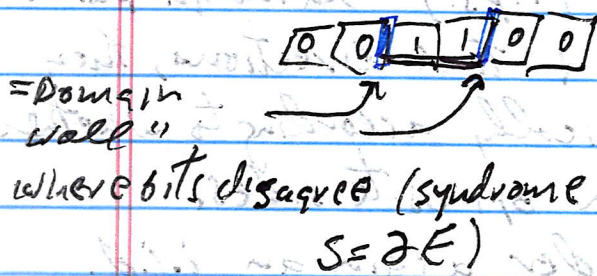 0 0 1 1 0 0
"Domain
wall"
where bits disagree (syndrome
S=∂E)